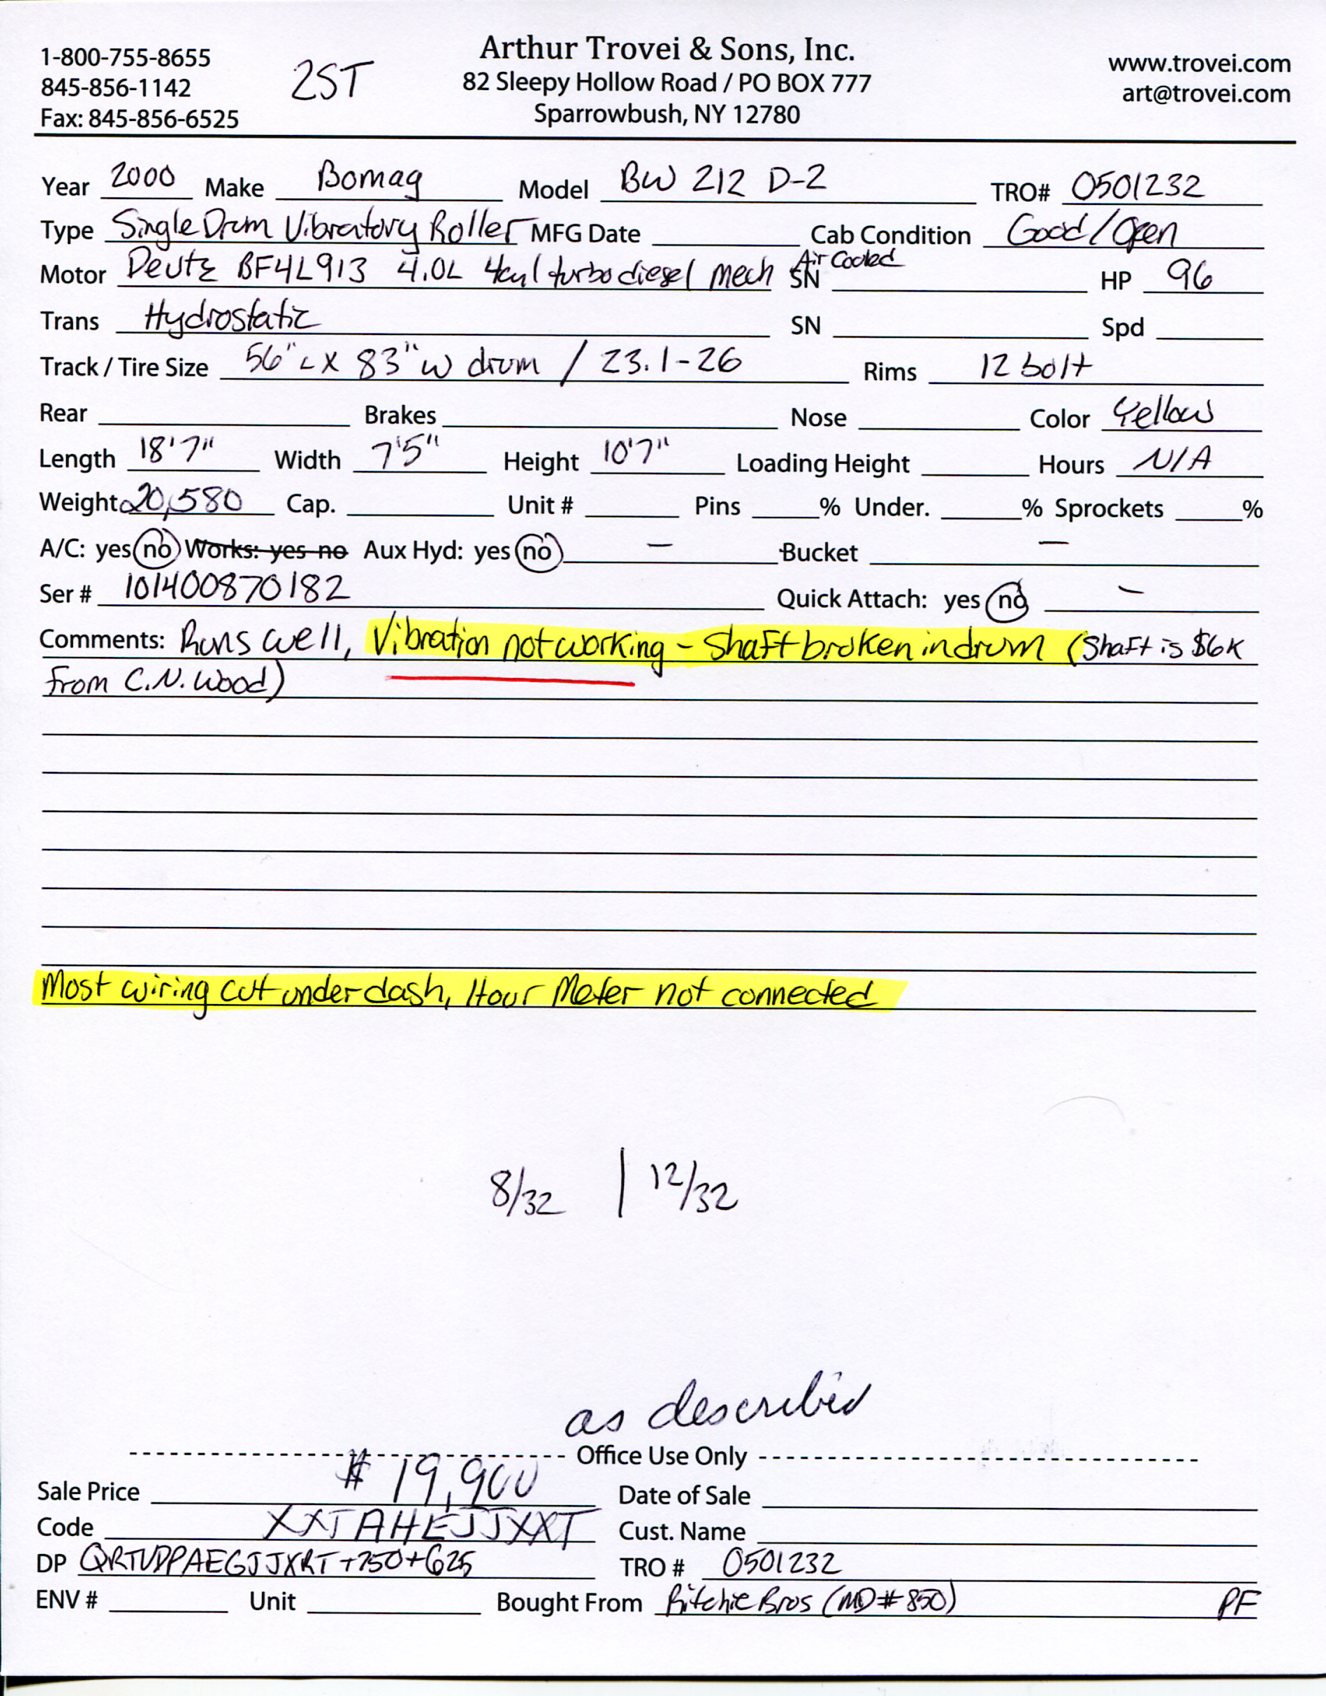 1-800-755-8655
845-856-1142
Fax: 845-856-6525
2ST
Arthur Trovei & Sons, Inc.
82 Sleepy Hollow Road / PO BOX 777
Sparrowbush, NY 12780
www.trovei.com
art@trovei.com
Year 2000 Make Bomag Model BW 212 D-2 TRO# 0501232
Type Single Drum Vibratory Roller MFG Date Cab Condition Good/Open
Motor Deutz BF4L913 4.0L 4cyl turbo diesel mech Air Cooled SN HP 96
Trans Hydrostatic SN Spd
Track / Tire Size 56"L X 83"W drum / 23.1-26 Rims 12 bolt
Rear Brakes Nose Color Yellow
Length 18'7" Width 7'5" Height 10'7" Loading Height Hours N/A
Weight 20,580 Cap. Unit # Pins % Under. % Sprockets %
A/C: yes no Works: yes no Aux Hyd: yes no — Bucket —
Ser # 101400870182 Quick Attach: yes no —
Comments: Runs well, Vibration not working - Shaft broken in drum (Shaft is $6K
from C.N. Wood)
Most wiring cut under dash, Hour Meter not connected
8/32 | 12/32
as described
Office Use Only
Sale Price $19,900 Date of Sale
Code XXTAHEJJXXT Cust. Name
DP QRTUDPAEGJJXRT+750+625 TRO # 0501232
ENV # Unit Bought From Ritchie Bros (MD#850) PF